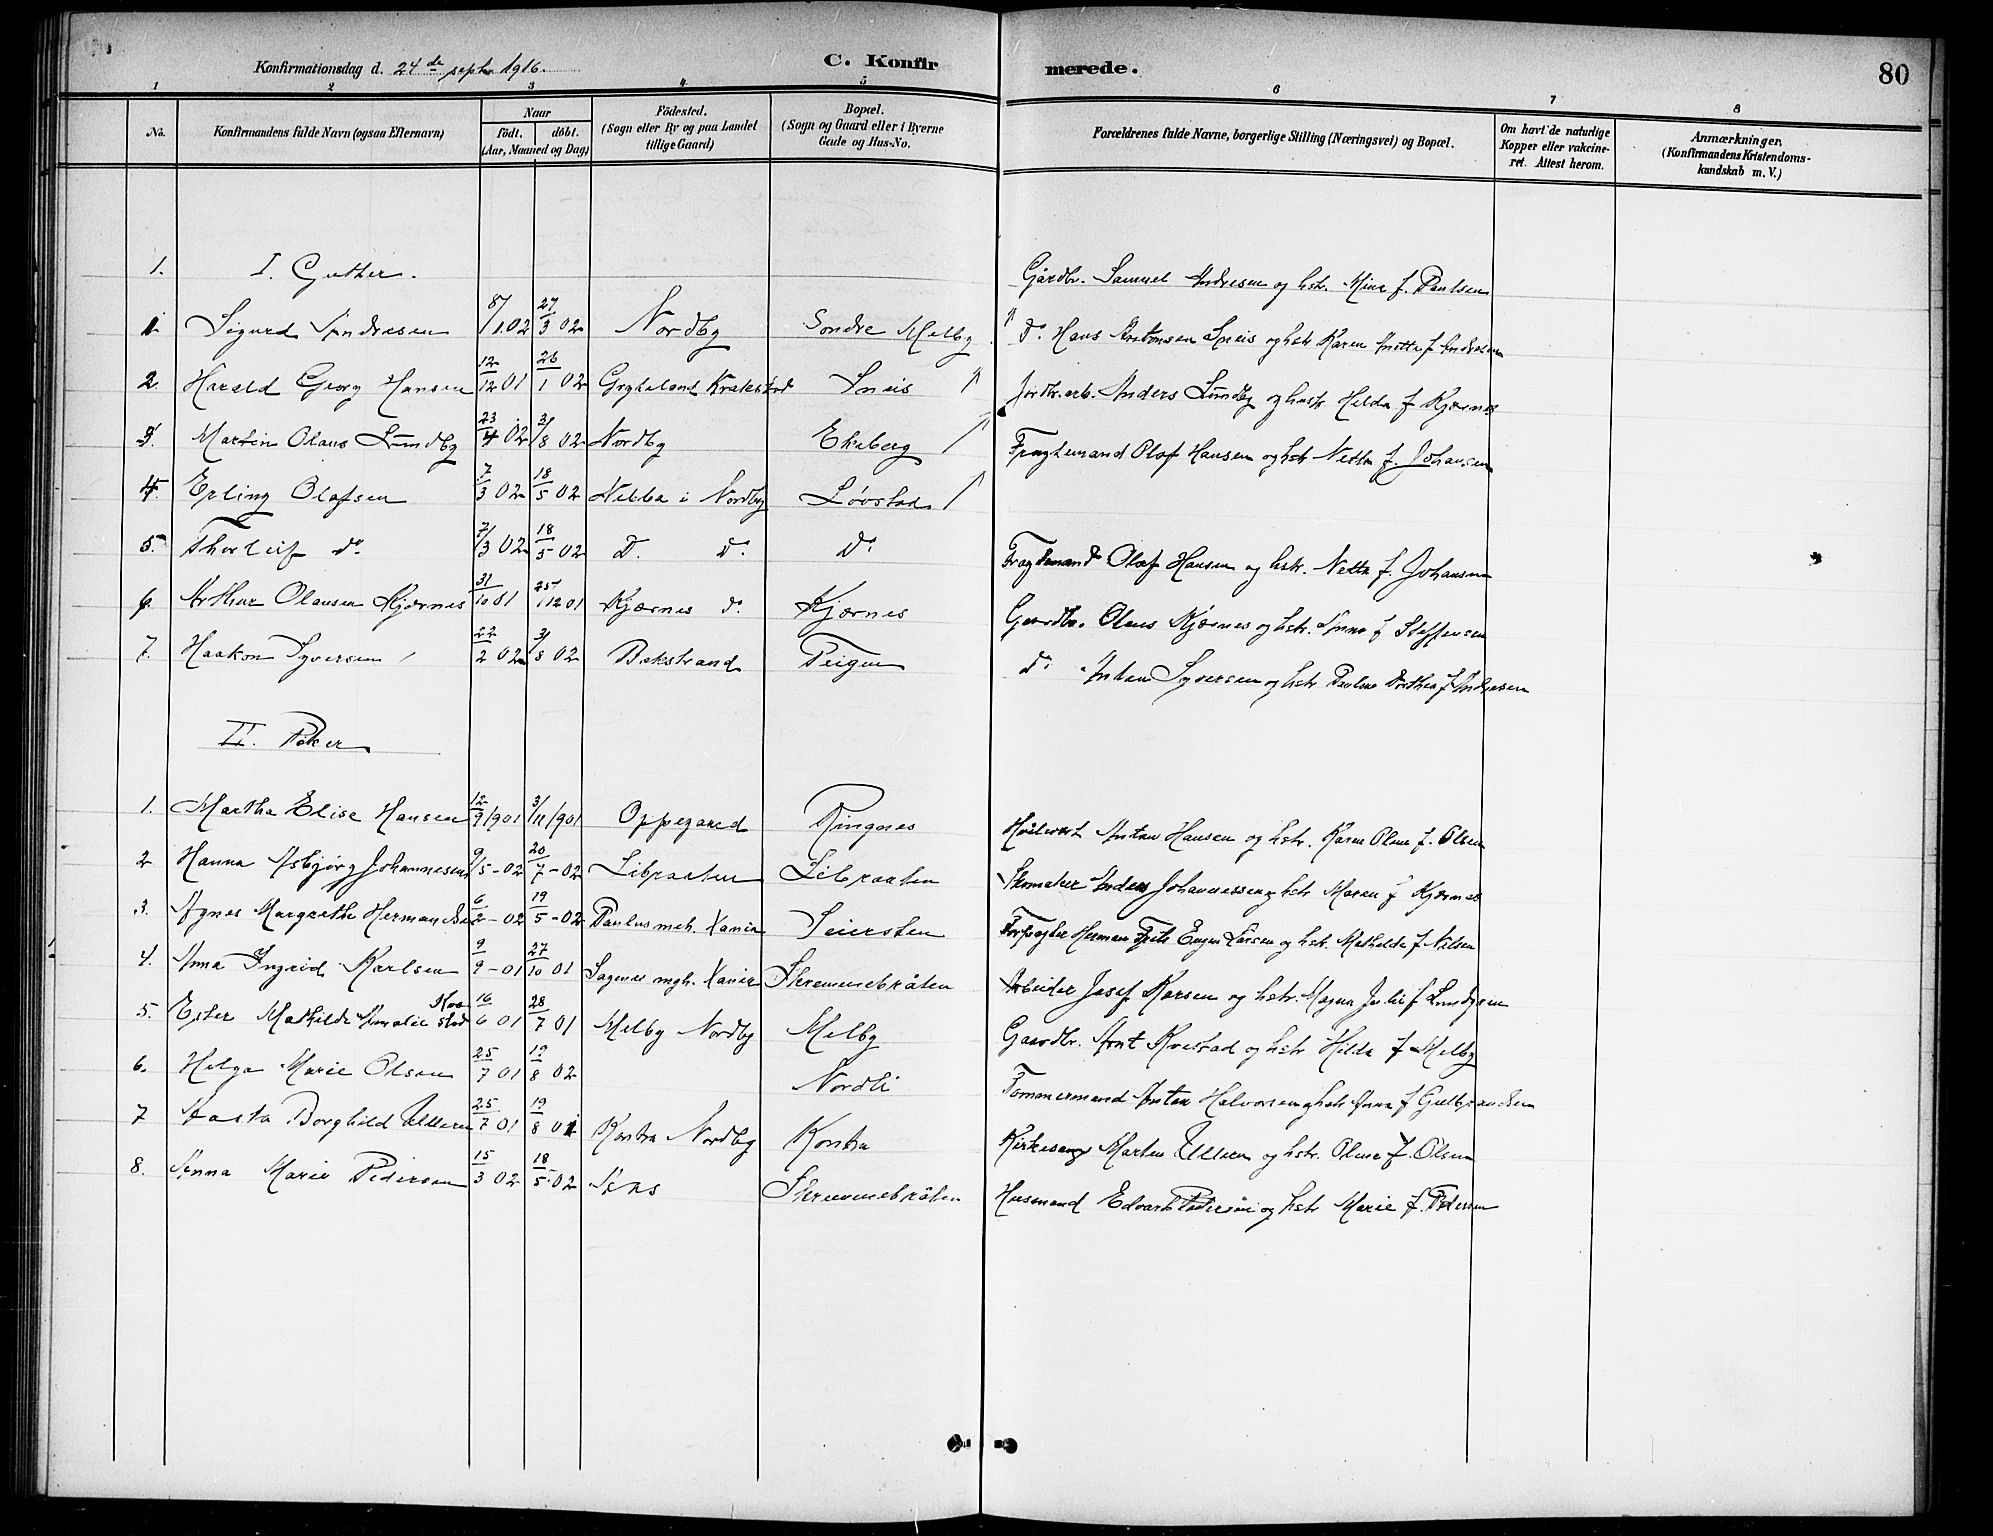 Konfirmationsdag d. 24de septr 1916.
C. Konfirmerede.
80
1 2 3 4 5 6 7 8
No.
Konfirmandens fulde Navn (ogsaa Efternavn)
Naar
födt. döbt.
(Aar, Maaned og Dag)
Födested.
(Sogn eller By og paa Landet
tillige Gaard)
Bopæl.
(Sogn og Gaard eller i Byerne
Gade og Hus-No.
Forældrenes fulde Navne, borgerlige Stilling (Næringsvei) og Bopæl.
Om havt de naturlige
Kopper eller vakcine-
ret. Attest herom.
Anmærkninger.
(Konfirmandens Kristendoms-
kundskab m. V.)
1. I. Gutter.
Gårdbr. Samuel Andresen og hstr. Mina f. Paulsen
1. Sigurd Andresen 8/1 02 27/3 02 Nordby Søndre Melby
do. Hans Antonsen Sneis og hstr Karen Anette f Andresen
2. Harald Georg Hansen 12/12 01 26/1 02 Kraakstad Sneis
Anders Lundby og hustr Hilda f Kjærnes
3. Martin Olaus Lundby 23/4 02 3/8 02 Nordby Ekeberg
Fragtemand Olaf Hansen og hstr Netta f. Johansen
4. Erling Olafsen 7/3 02 18/5 02 Nebba i Nordby Løvstad
5. Thorleif do. 7/3 02 18/5 02 D. do. do.
Fragtemand Olaf Hansen og hstr. Netta f. Johansen
6. Arthur Olausen Kjærnes 31/10 01 25/12 01 Kjærnes do. Kjærnes
Gaardbr. Olaus Kjærnes og hstr. Anna f Steffensen
7. Haakon Syversen 22/2 02 3/8 02 Bakstrand Teigen
do. Anton Syversen og hstr Pauline Dorthea f Andresen
II. Piker
1. Martha Elise Hansen 12/9 1901 3/11 1901 Oppegaard Ringnes
Anton Hansen og hstr. Karen Oline f. Olsen
2 Hanna Asbjørg Johannesen 9/5-02 20/7-02 Libraaten Libraaten
Skomaker Anders Johannessen og hstr Maren f Kjærnes
3. Agnes Margrethe Hermandsen 6/2-02 19/5-02 Paulus meh. Xania Seiersten
Forpagter Herman Fritz Eugen Larsen og hstr. Mathilde f Nilsen
4. Anna Ingrid Karlsen 9/9-01 27/10 01 Sagenes mgh. Xania Skremmebråten
Arbeider Josef Karsen og hstr. Magna Julie f Lundgren
5. Ester Mathilde Amalie Kvestad 16/6 01 28/7 01 Melby Nordby Melby
Gaardbr. Arnt Kvestad og hstr Hilda f Melby
6. Helga Marie Olsen 25/7 01 19/8 02 Nordli
Tømmermand Anton Halvorsen og hstr Anna f Gulbrandsen
7 Aasta Borghild Ulleren 25/7 01 19/8 01 Kontra Nordby Kontra
Kirkesang. Martin Ulleren og hstr. Oline f. Olsen
8. Anna Marie Pedersen 15/3 02 18/5 02 Aas Skremmebråten
Husmand Edvard Pedersen og hstr Marie f. Pedersen